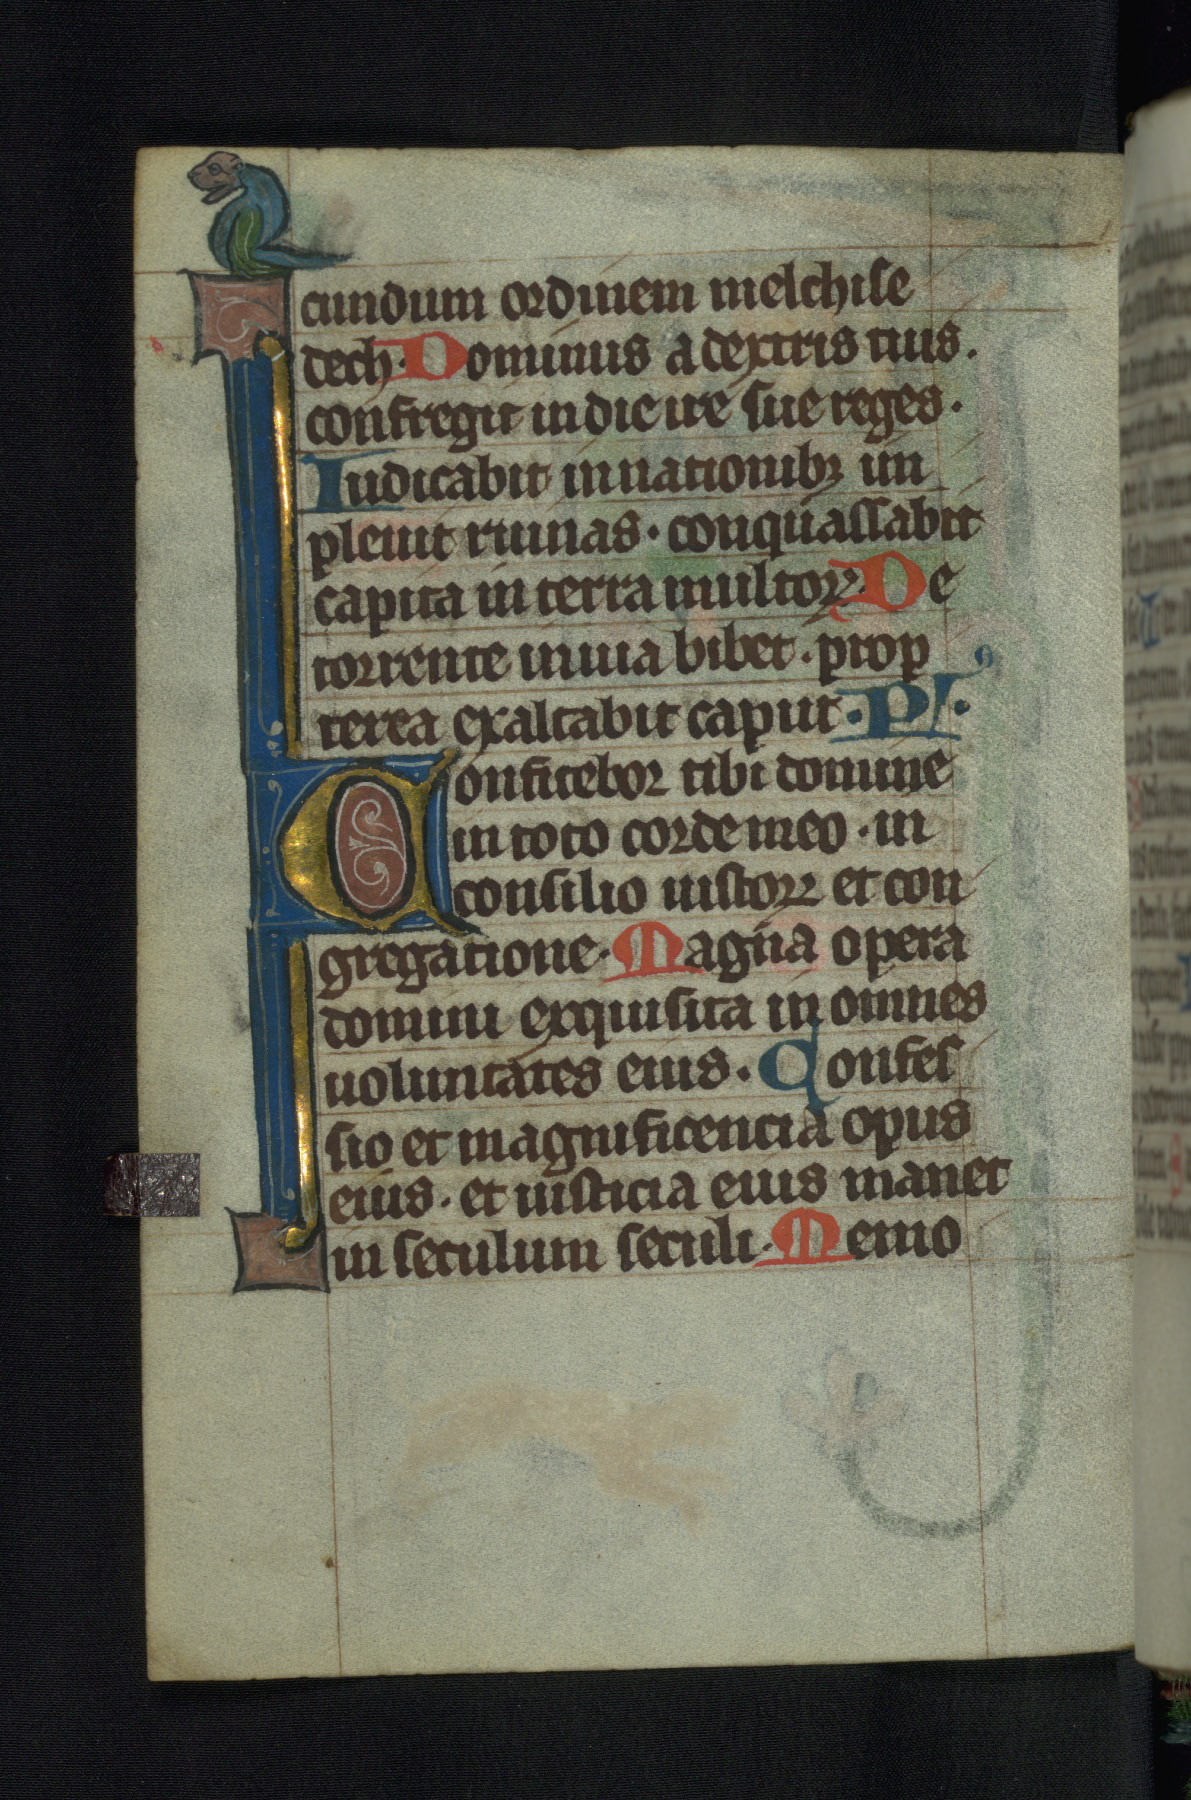 cundum ordinem melchise
dech. Dominus a dextris tuis.
confregit in die ire sue reges.
Iudicabit in nationibꝫ im
pleuit ruinas. conquassabit
capita in terra multoꝝ. De
torrente in uia bibet. prop
terea exaltabit caput. pˢ.
Confitebor tibi domine
in toto corde meo. in
consilio iustoꝝ et con
gregatione. Magna opera
domini exquisita in omnes
uoluntates eius. Confes
sio et magnificencia opus
eius. et iusticia eius manet
in seculum seculi. Memo